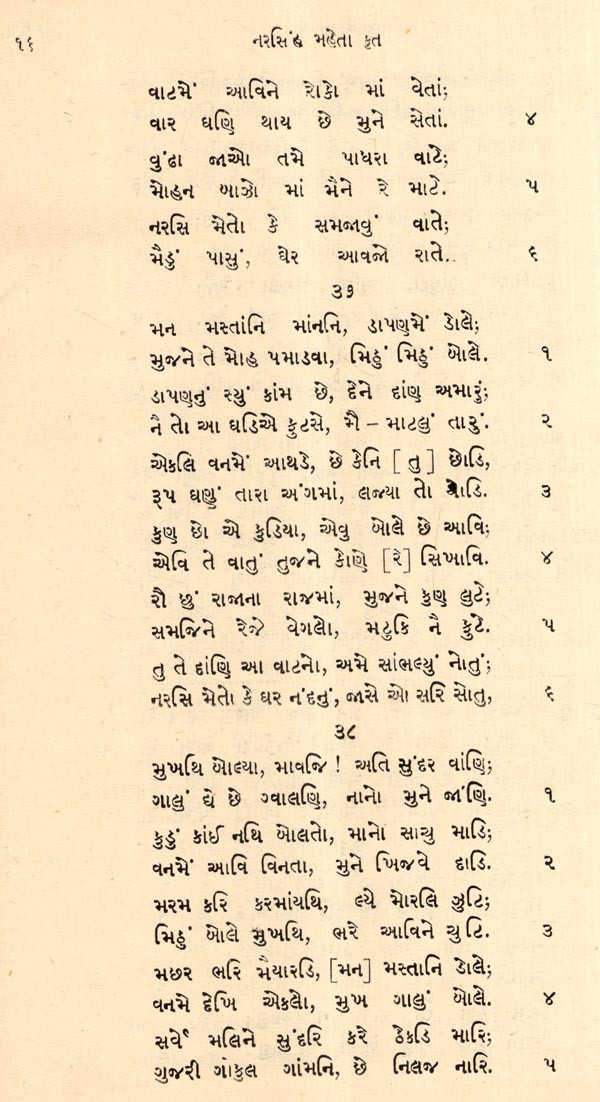 ૧૬ નરસિંહ મહેતા કૃત
વાટમેં આવિને રોકો માં વેતાં;
વાર ઘણિ થાય છે મુને સેતાં. ૪
વુંઢા જાઓ તમે પાધરા વાટે;
મોહન બાઝો માં મૈને રે માટે. ૫
નરસિ મેતો કે સમજાવું વાતે;
મૈડું પાસું, ઘેર આવજો રાતે. ૬
૩૭
મન મસ્તાંનિ માંનનિ, ડાપણમેં ડોલે;
મુજને તે મોહ પમાડવા, મિઠું મિઠું બોલે. ૧
ડાપણનું સ્યું કાંમ છે, દેને દાંણ અમારું;
નૈ તો આ ઘડિએ ફુટસે, મૈ – માટલું તારું. ૨
એકલિ વનમેં આથડે, છે કેનિ [ તુ ] છોડિ,
રૂપ ઘણું તારા અંગમાં, લજ્યા તો થોડિ. ૩
કુણ છો એ કુડિયા, એવુ બોલે છે આવિ;
એવિ તે વાતું તુજને કોંણે [રે] સિખાવિ. ૪
રૌ છું રાજાના રાજમાં, મુજને કુણ લુટે;
સમજિને રેજે વેગલો, મટુકિ નૈ ફુટે. ૫
તુ તે દાંણિ આ વાટનો, અમે સાંભલ્યું નોતું;
નરસિ મેતો કે ઘર નંદનું, જાસે ઓ સરિ સોતુ, ૬
૩૮
મુખથિ બોલ્યા, માવજિ ! અતિ સુંદર વાંણિ;
ગાલું દ્યે છે ગ્વાલણિ, નાનો મુને જાંણિ. ૧
કુડું કાંઈ નથિ બોલતો, માનો સાચુ માડિ;
વનમેં આવિ વિનતા, મુને ખિજવે દાડિ. ૨
મરમ કરિ કરમાંયથિ, લ્યે મોરલિ ઝુટિ;
મિઠું બોલે મુખથિ, ભરે આવિને ચુટિ. ૩
મછર ભરિ મૈયારડિ, [મન] મસ્તાનિ ડોલે;
વનમે દેખિ એકલો, મુખ ગાલું બોલે. ૪
સર્વે મલિને સુંદરિ કરે ઠેકડિ મારિ;
ગુજરી ગોકુલ ગાંમનિ, છે નિલજ નારિ. ૫